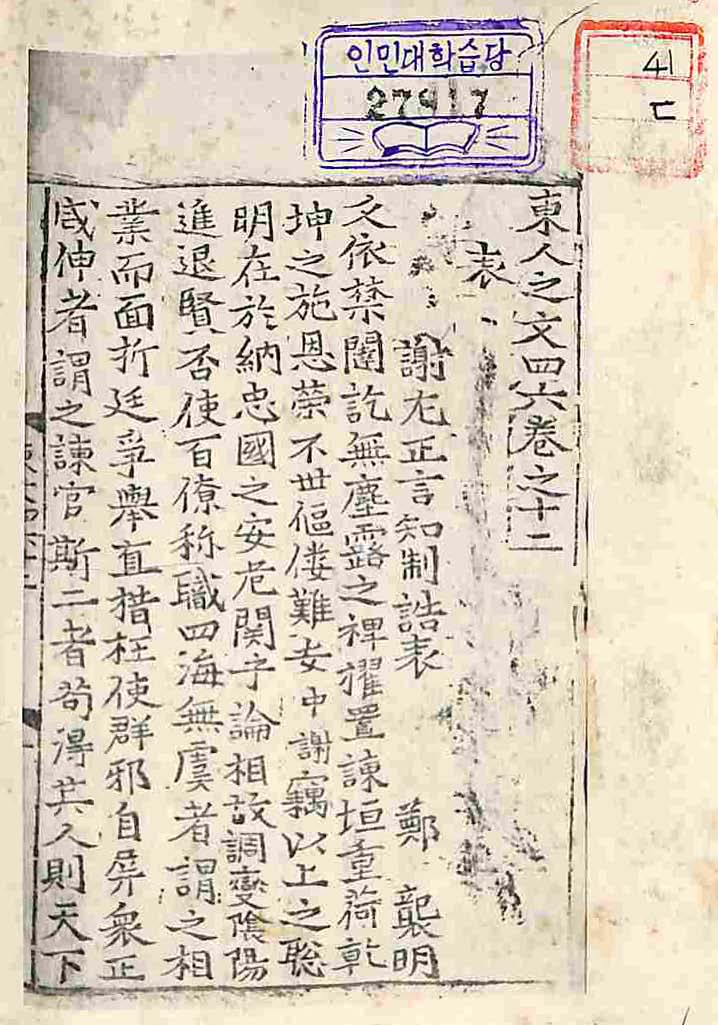 인민대학습당
41
ㄷ
東人之文四六卷之十二
表
謝左正言知制誥表 鄭 襲明
久依禁闥訖無塵露之裨擢置諫垣重荷乾
坤之施恩榮不世傴僂難安中謝竊以上之聡
明在於納忠國之安危関乎論相故調變陰陽
進退賢否使百僚称職四海無虞者謂之相
業而面折廷爭舉直措枉使群邪自屏衆正
咸伸者謂之諫官斯二者苟得其人則天下